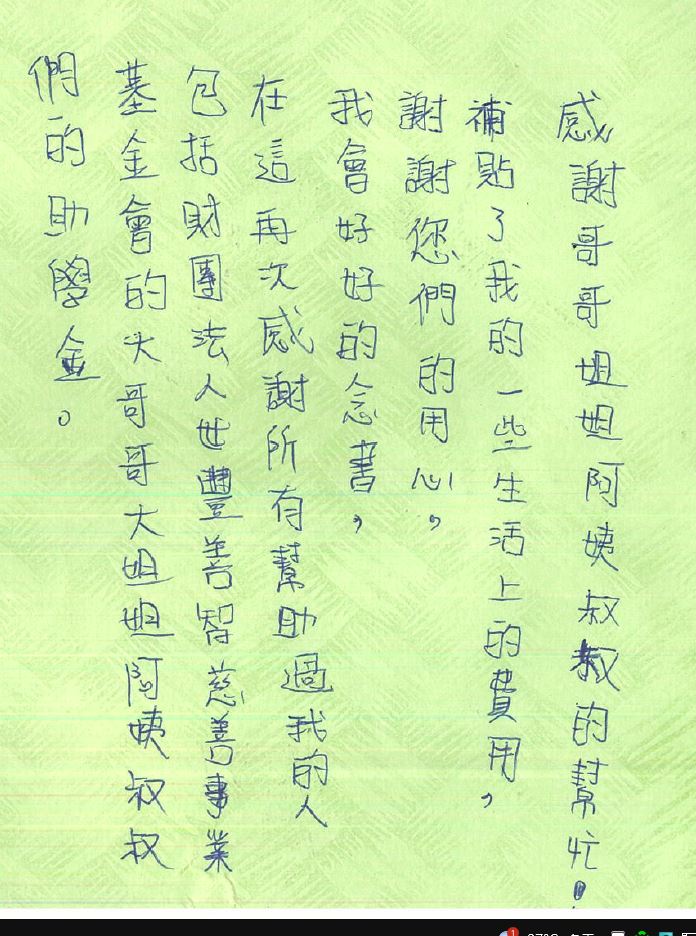 感謝哥哥姐姐阿姨叔叔的幫忙!
補貼了我的一些生活上的費用,
謝謝您們的用心。
我會好好的念書,
在這再次感謝所有幫助過我的人
包括財團法人世豐善智慈善事業
基金會的大哥哥大姐姐阿姨叔叔
們的助學金。